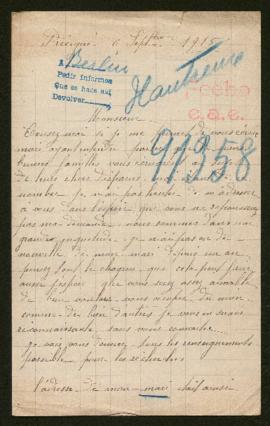 6 Septbre 1915
A Berlin
Pedir informes
Que se hace aqui
Devolver
Hautseux
Recibo
e.a.e.
91358
Monsieur
Excusez moi si je me permets de vous écrire
mais ayant entendu par
familles vous
de leurs chers disparus
nombre je n'ai pas hésité de m'adresser
à vous dans l'espoir que vous ne repousserez
pas ma demande nous sommes dans une
grande inquiétude je n'ai pas eu de
nouvelle de mon mari depuis un an
pensez tout le chagrin que cela peut faire
aussi j'espère que vous serez assez aimable
de bien vouloir vous occuper du mien
comme de bien d'autres je vous en serais
reconnaissante sans vous connaître
je vais vous donner tous les renseignements
possible pour les recherches
l'adresse de mon mari était ainsi